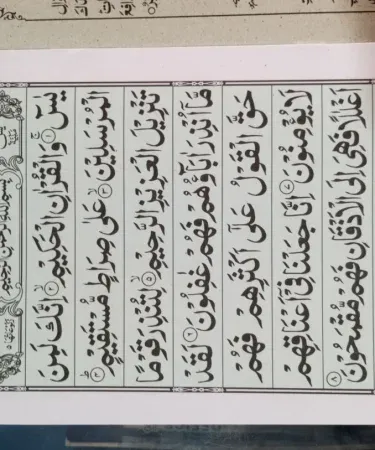 بِسْمِ اللّٰهِ الرَّحْمٰنِ الرَّحِيْمِ
يٰسٓ ۚ ﴿۱﴾ وَالْقُرْاٰنِ الْحَكِيْمِ ۙ ﴿۲﴾ اِنَّكَ لَمِنَ
الْمُرْسَلِيْنَ ۙ ﴿۳﴾ عَلٰى صِرَاطٍ مُّسْتَقِيْمٍ ؕ ﴿۴﴾
تَنْزِيْلَ الْعَزِيْزِ الرَّحِيْمِ ۙ ﴿۵﴾ لِتُنْذِرَ قَوْمًا
مَّاۤ اُنْذِرَ اٰبَآؤُهُمْ فَهُمْ غٰفِلُوْنَ ﴿۶﴾ لَقَدْ
حَقَّ الْقَوْلُ عَلٰٓى اَكْثَرِهِمْ فَهُمْ
لَا يُؤْمِنُوْنَ ﴿۷﴾ اِنَّا جَعَلْنَا فِيْٓ اَعْنَاقِهِمْ
اَغْلٰلًا فَهِيَ اِلَى الْاَذْقَانِ فَهُمْ مُّقْمَحُوْنَ ﴿۸﴾